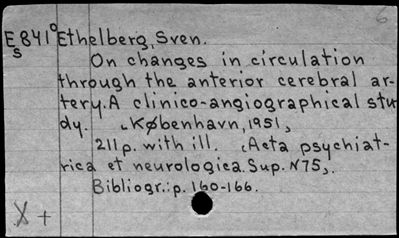 6
Es841° Ethelberg, Sven.
On changes in circulation
through the anterior cerebral ar-
tery. A clinico-angiographical stu
dy. København, 1951,
211p. with ill. (Acta psychiat-
rica et neurologica. Sup. N75).
Bibliogr.: p. 160-166.
X +